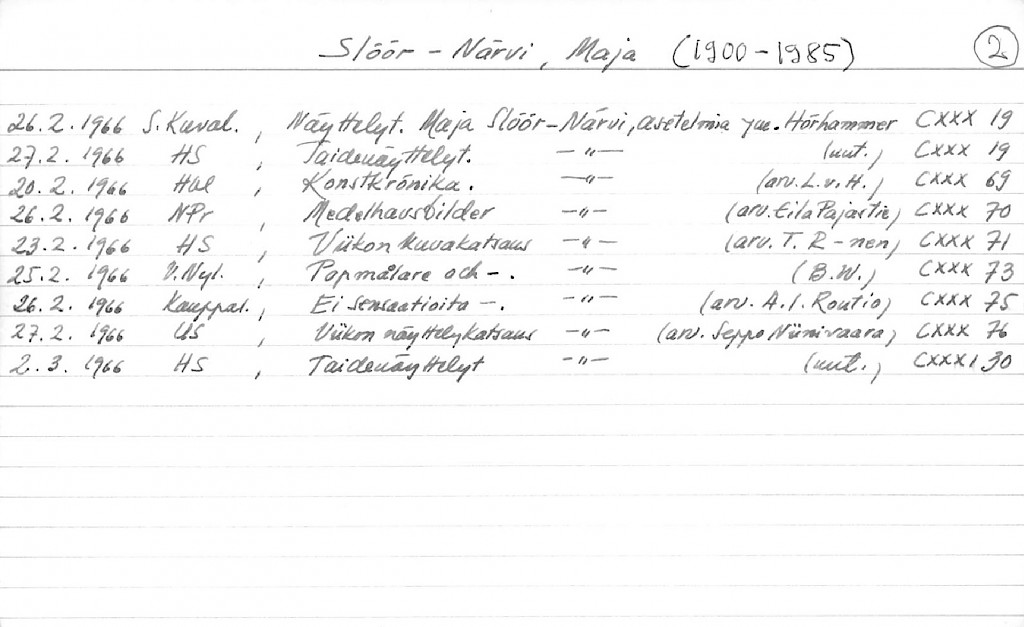 Slöör - Närvi, Maja (1900-1985) 2
26.2.1966 S. Kuval., Näyttelyt. Maja Slöör-Närvi, asetelmia ym. Hörhammer CXXX 19
27.2.1966 HS, Taidenäyttelyt. -"- (uut.) CXXX 19
20.2.1966 Hbl, Konstkrönika. -"- (arv. L.v.H.) CXXX 69
26.2.1966 NPr, Medelhavsbilder -"- (arv. Eila Pajastie) CXXX 70
23.2.1966 HS, Viikon kuvakatsaus -"- (arv. T. R-nen) CXXX 71
25.2.1966 V. Nyl., Popmålare och -. -"- (B.W.) CXXX 73
26.2.1966 Kauppal., Ei sensaatioita -. -"- (arv. A.I. Routio) CXXX 75
27.2.1966 US Viikon näyttelykatsaus -"- (arv. Seppo Niinivaara) CXXX 76
2.3.1966 HS, Taidenäyttelyt -"- (uut.) CXXXI 30